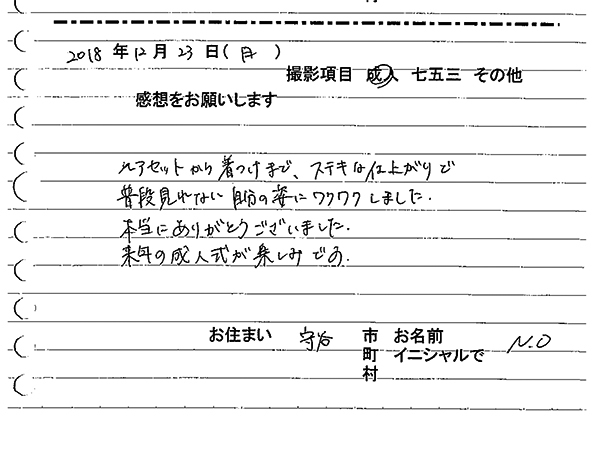 2018 年 12 月 23 日 ( 日 )
撮影項目 成人 七五三 その他
感想をお願いします
ヘアセットから着つけまで、ステキな仕上がりで
普段見れない自分の姿にワクワクしました.
本当にありがとうございました.
来年の成人式が楽しみです.
お住まい 守谷 市 お名前
町 イニシャルで N.O
村